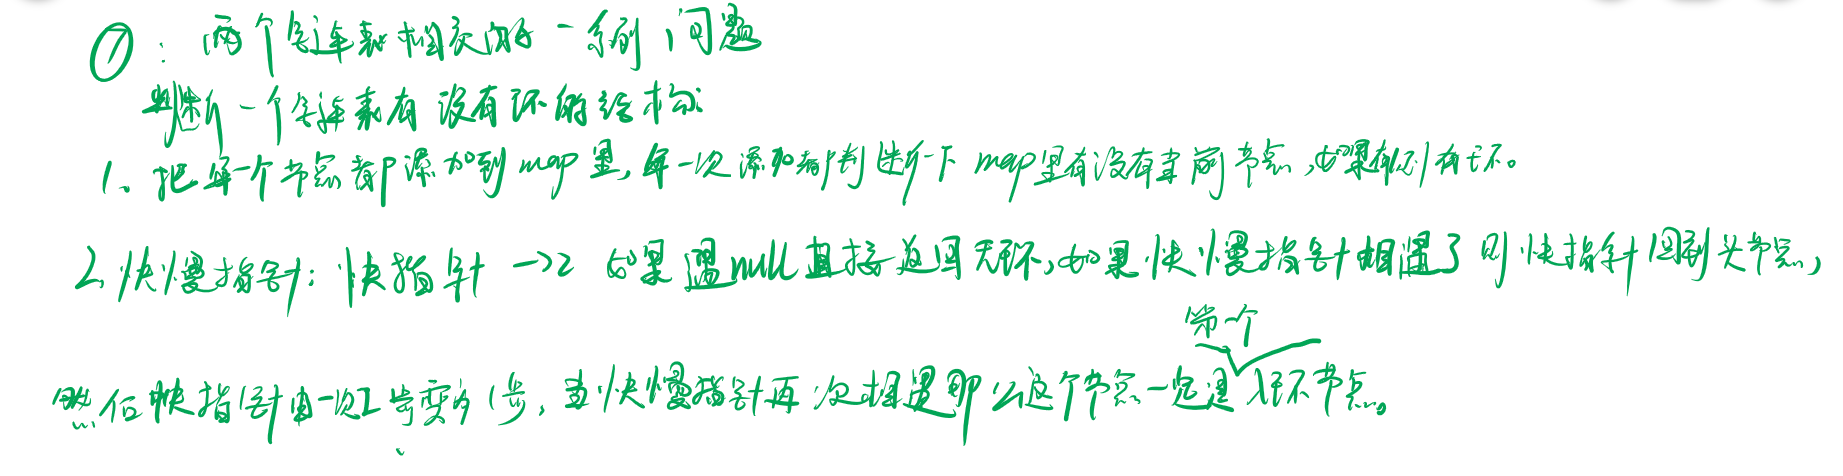 ①：两个单链表相交的一系列问题
判断一个单链表有没有环的结构
1、把每一个节点都添加到map里，每一次添加都判断一下map里有没有当前节点，如果有则有环。
2、快慢指针：快指针→2 如果遇null直接返回无环，如果快慢指针相遇了则快指针回到头节点，
第一个
然后快指针由一次2步变为1步，当快慢指针再次相遇那么这个节点一定是入环节点。